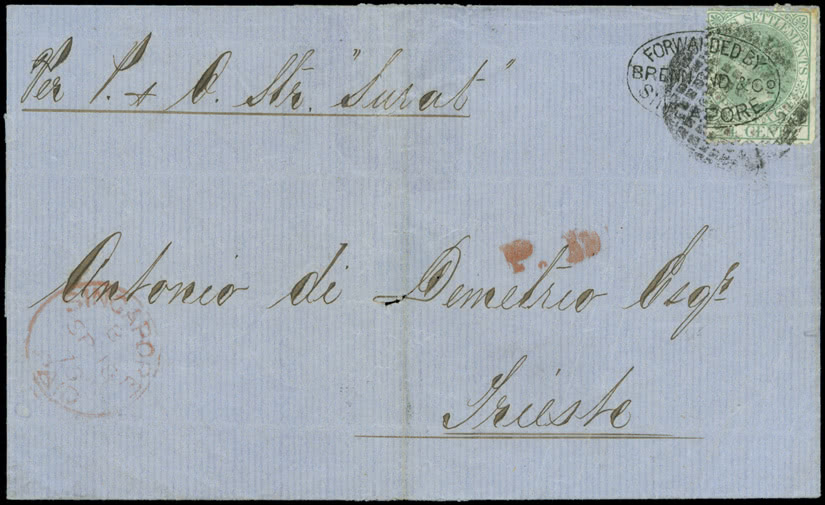 Per P. & O. Str. "Surat"
SETTLEMENTS
FORWARDED BY
BRENNAND & Co
SINGAPORE
CENTS
P. D.
Antonio di Demetrio Esqr.
Trieste
SINGAPORE
PAID